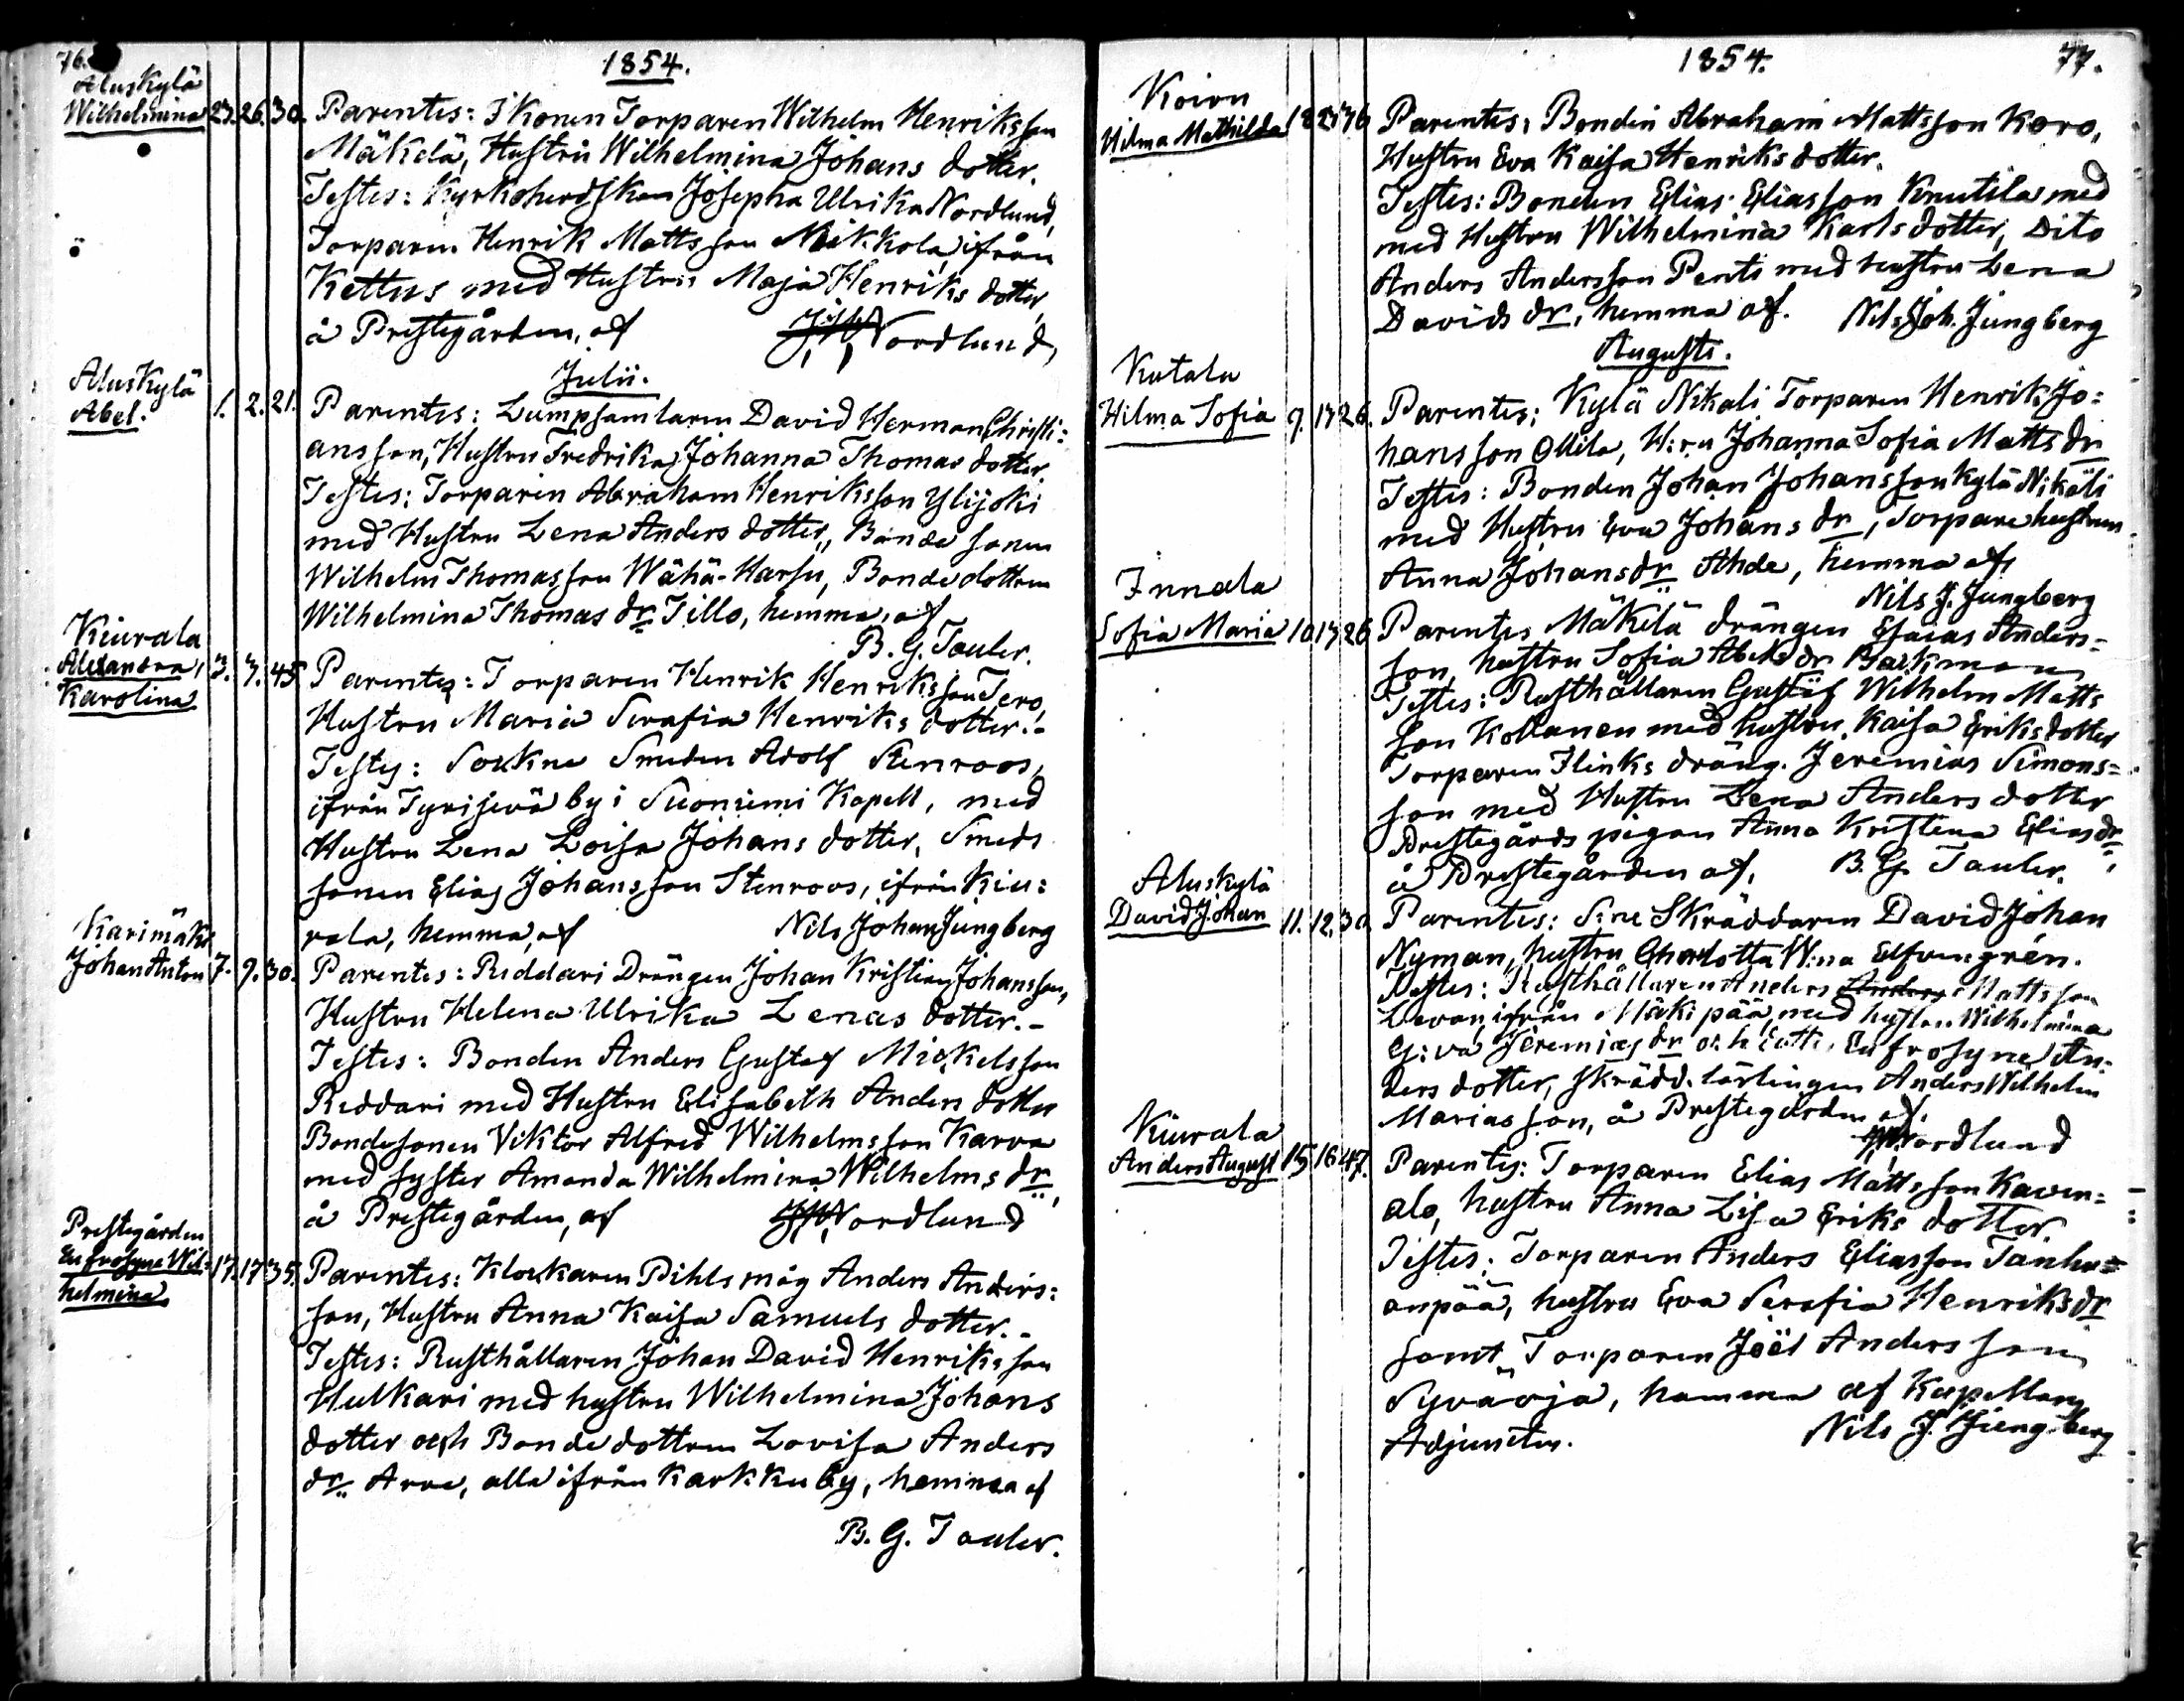 76.
1854.
Aluskylä
Wilhelmina 23. 26. 30. Parentes: Ikonen Torparen Wilhelm Henriksson
Mäkelä, Hustru Wilhelmina Johans dotter.
Testes: Kyrkoherdskan Josepha Ulrika Nordlund,
Torparen Henrik Mattsson Mikkola, ifrån
Kettus med Hustru Maja Henriks dotter,
å Prestegården, af Nordlund,
Julii.
Aluskylä
Abel. 1. 2. 21. Parentes: Lumpsamlaren David Herman Christi:
ansson, Hustru Fredrika Johanna Thomas dotter.
Testes: Torparen Abraham Henriksson Ylijoki
med Hustru Lena Anders dotter, Bonde sonen
Wilhelm Thomasson Wähä-Harsu, Bonde dottren
Wilhelmina Thomas dr. Tillo, hemma, af
B. G. Tauler.
Kiurala
Alexandra, Karolina 3. 7. 45. Parentes: Torparen Henrik Henriksson Tero,
Hustru Maria Serafia Henriks dotter.-
Testes: Sockne Smeden Adolf Stenroos,
ifrån Tyrisevä by i Suoniemi Kapell, med
Hustru Lena Loisa Johans dotter, Smeds
sonen Elias Johansson Stenroos, ifrån Kiu:
rala, hemma, af Nils Johan Ljungberg
Karimäki
Johan Anton 7. 9. 30. Parentes: Riddari Drängen Johan Kristian Johansson,
Hustru Helena Ulrika Lenas dotter.-
Testes: Bonden Anders Gustaf Mickelsson
Riddari med Hustru Elisabeth Anders dotter
Bondesonen Viktor Alfred Wilhelmsson Karva
med syster Amanda Wilhelmina Wilhelms dr,
å Prestegården, af Nordlund
Prestegården
Eufrosyne Wil:
helmina 17. 17. 35. Parentes: Klockaren Pihls måg Anders Anders:
son, Hustru Anna Kaisa Samuels dotter.-
Testes: Rusthållaren Johan David Henriksson
Hulkari med hustru Wilhelmina Johans
dotter och Bonde dottren Lovisa Anders
dr. Arra, alla ifrån Karkku by, hemma af
B. G. Tauler.
1854. 77.
Koivu
Hilma Mathilda 18 23 76 Parentes: Bonden Abraham Mattsson Koro,
Hustru Eva Kaisa Henriks dotter.
Testes: Bonden Elias Eliasson Knutila med
med Hustru Wilhelmina Karls dotter, Dito
Anders Andersson Penti med hustru Lena
Davids dr, hemma af. Nils Joh. Ljungberg
Augusti.
Kutala
Hilma Sofia 9. 17 26. Parentes: Kylä Nikali Torparen Henrik Jo:
hansson Ollila, H:ru Johanna Sofia Matts dr
Testes: Bonden Johan Johansson Kylä Nikali
med Hustru Eva Johans dr, Torpare hustrun
Anna Johans dr Ahde, hemma af
Nils J. Ljungberg
Innala
Sofia Maria 10 17 26 Parentes Mäkelä drängen Esaias Anders-
son, hustru Sofia Abels dr Backman
Testes: Rusthållaren Gustaf Wilhelm Matts
son Kollanen med hustru Kaisa Eriks dotter
Torparen Flinks dräng. Jeremias Simons=
son med Hustru Lena Anders dotter
Prestegårds pigan Anna Kristina Elias dr
å Prestegården af, B. G. Tauler.
Aluskylä
David Johan 11. 12. 30. Parentes: Sine Skräddaren David Johan
Nyman, hustru Charlotta W:na Elfvengrén.
Testes: Rusthållaren Anders Mattsson
Levon, ifrån Häkipää, med hustru Wilhelmina
Jeremias dr och Eufrosyne An:
ders dotter, skrädd. lärlingen Anders Wilhelm
Mariasson, å Prestegården af.
Nordlund
Kiurala
Anders August 15 16 47. Parentes: Torparen Elias Mattsson Kaven=
ala, hustru Anna Lisa Eriks dotter
Testes: Torparen Anders Eliasson Tanhu=
anpää, hustru Eva Serafia Henriks dr
samt Torparen Joël Andersson
Syväoja, hemma af Kapellans
Adjuncten. Nils J. Ljungberg